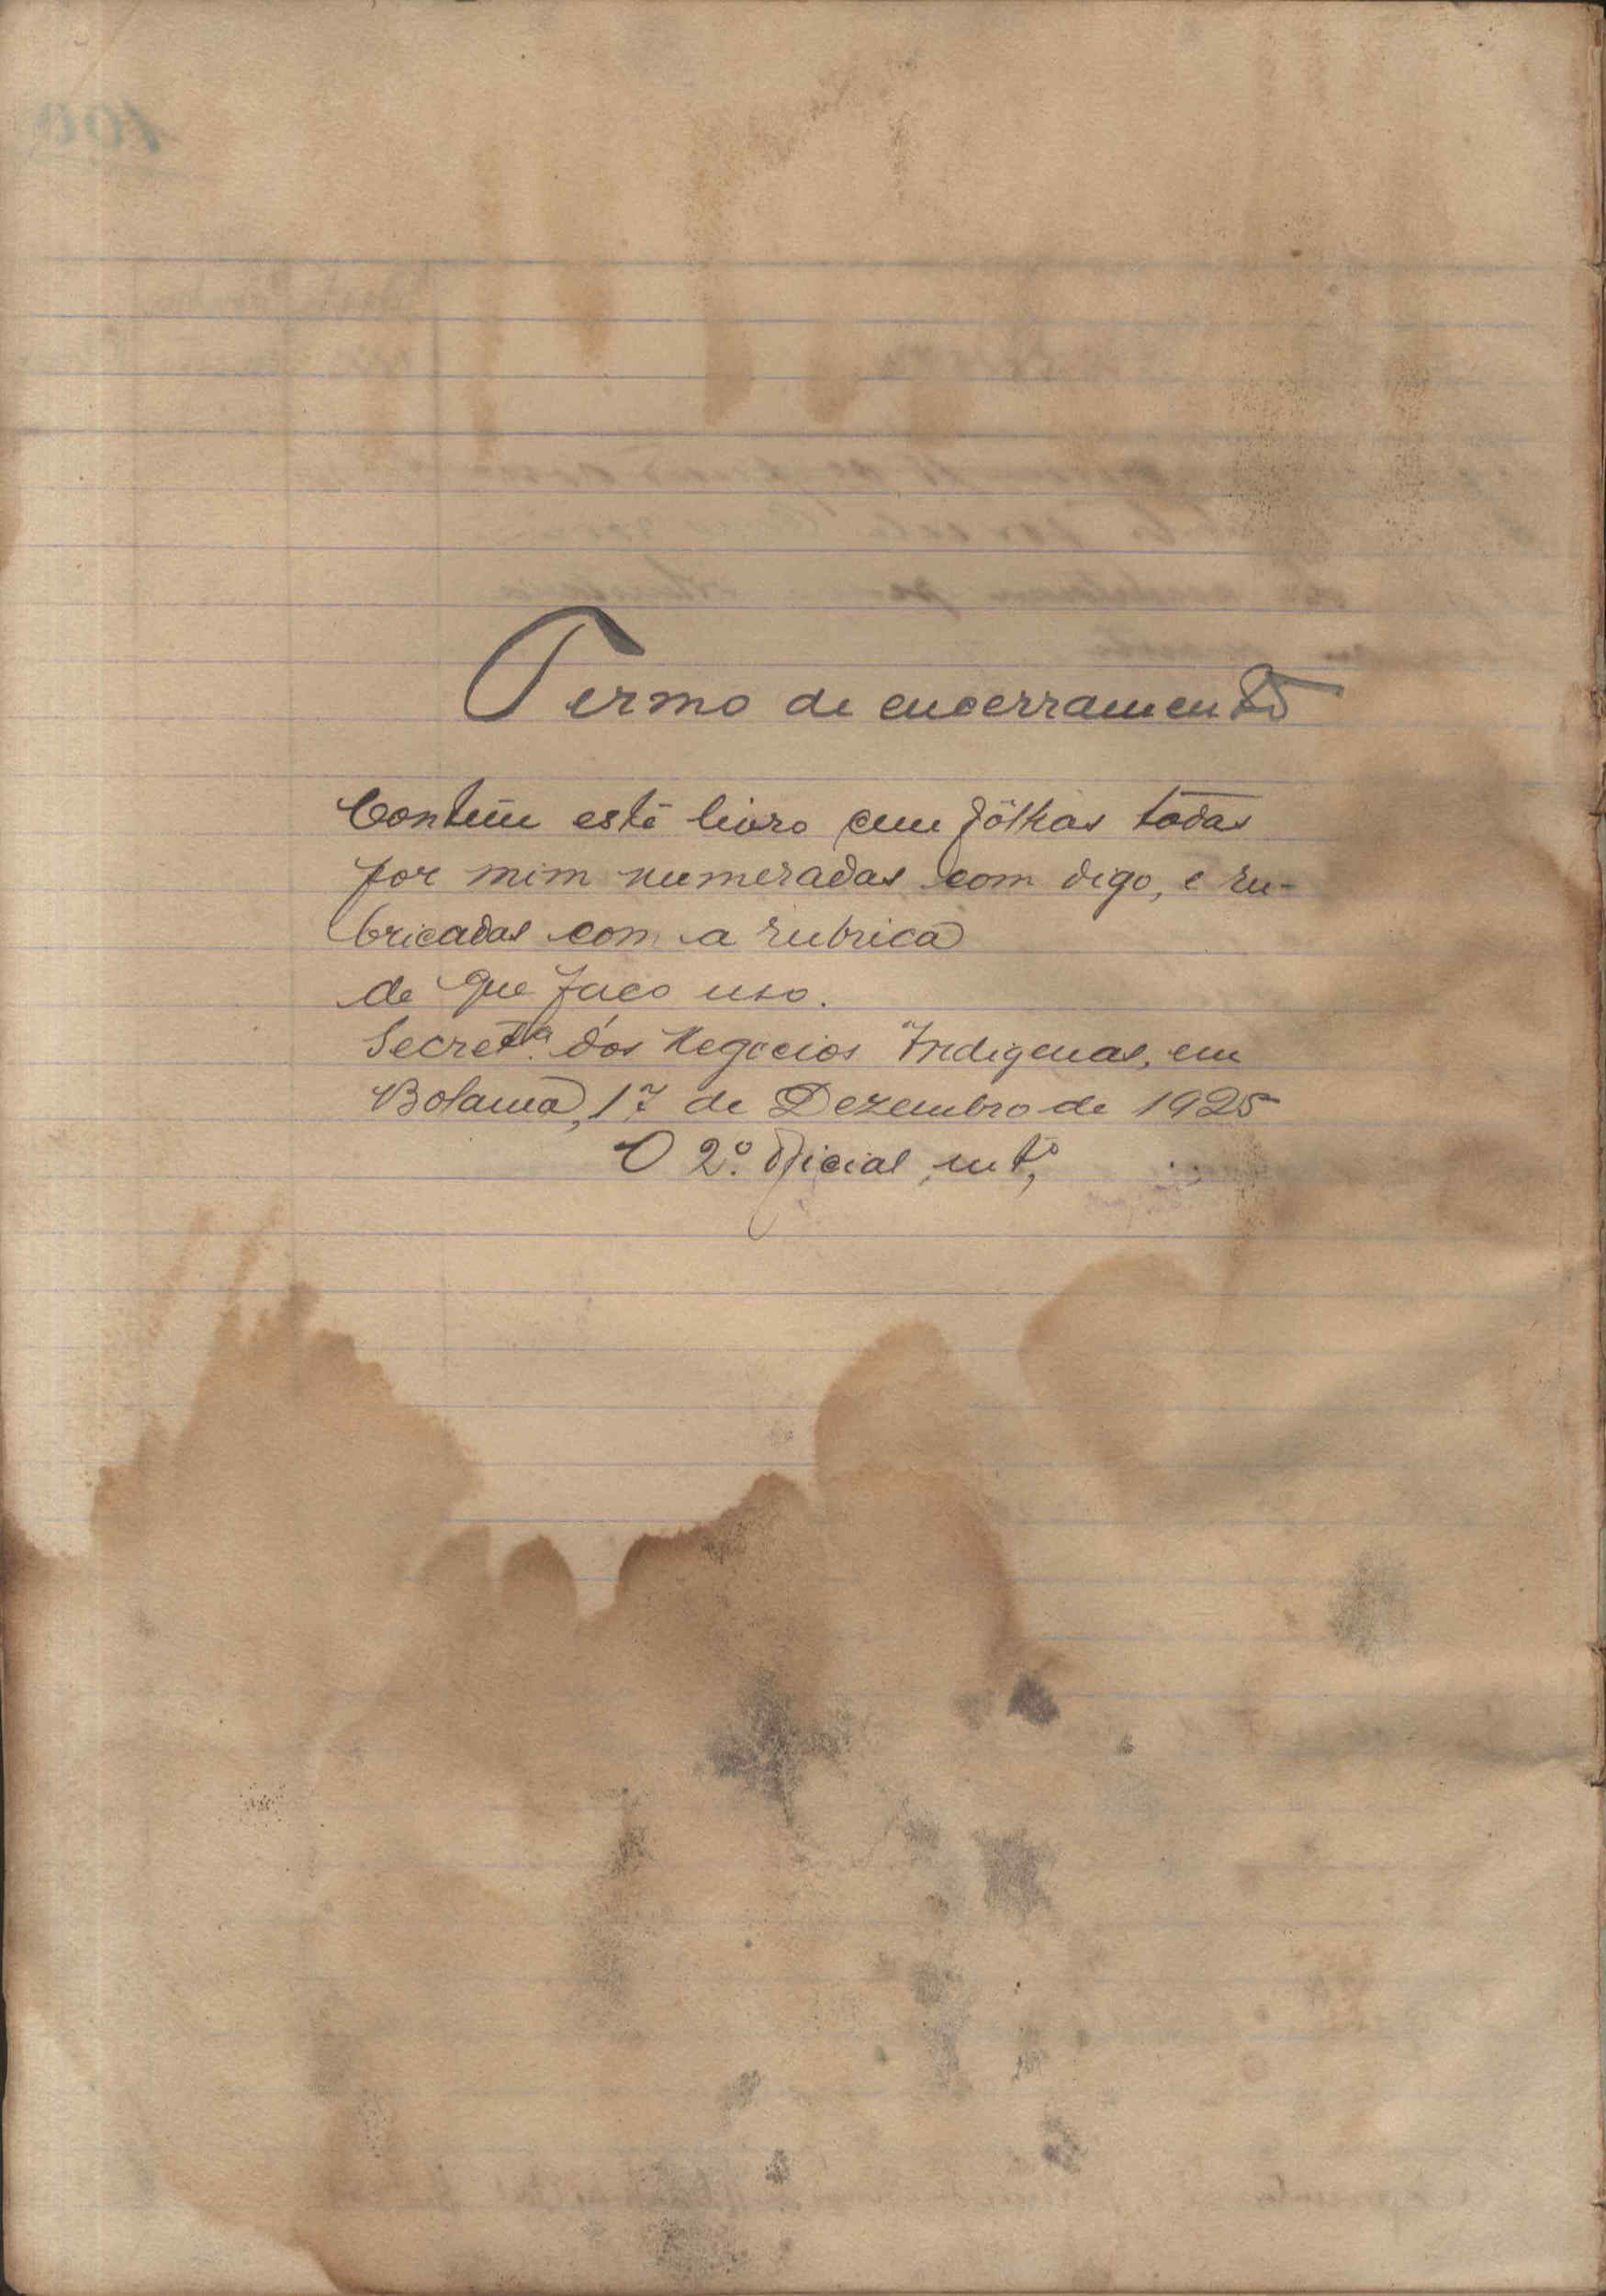 Termo de encerramento
Contêm este livro cem fôlhas todas
por mim numeradas com digo, e ru-
bricadas com a rubrica
de que faço uso.
Secretª dos Negocios Indigenas, em
Bolama, 17 de Dezembro de 1925
O 2º. Oficial, intº,